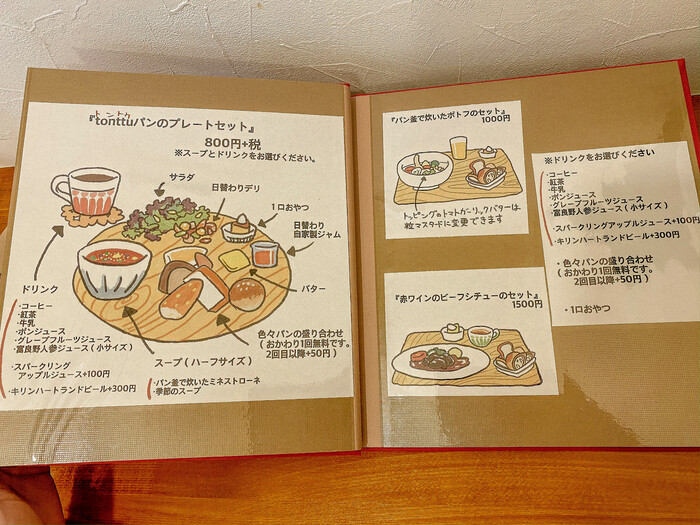 トントゥ
『tonttuパンのプレートセット』
800円+税
※スープとドリンクをお選びください。
サラダ
日替わりデリ
1口おやつ
日替わり
自家製ジャム
バター
ドリンク
・コーヒー
・紅茶
・牛乳
・ポンジュース
・グレープフルーツジュース
・富良野人参ジュース(小サイズ)
・スパークリング
アップルジュース+100円
・キリンハートランドビール+300円
スープ(ハーフサイズ)
・パン釜で炊いたミネストローネ
・季節のスープ
色々パンの盛り合わせ
(おかわり1回無料です。
2回目以降+50円)
『パン釜で炊いたポトフのセット』
1000円
トッピングのトマトガーリックバターは
粒マスタードに変更できます
『赤ワインのビーフシチューのセット』
1500円
※ドリンクをお選びください
・コーヒー
・紅茶
・牛乳
・ポンジュース
・グレープフルーツジュース
・富良野人参ジュース(小サイズ)
・スパークリングアップルジュース+100円
・キリンハートランドビール+300円
・色々パンの盛り合わせ
(おかわり1回無料です。
2回目以降+50円)
・1口おやつ